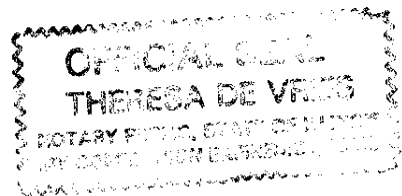 OFFICIAL SEAL
THERESA DE VRIES
NOTARY PUBLIC, STATE OF ILLINOIS
MY COMMISSION EXPIRES